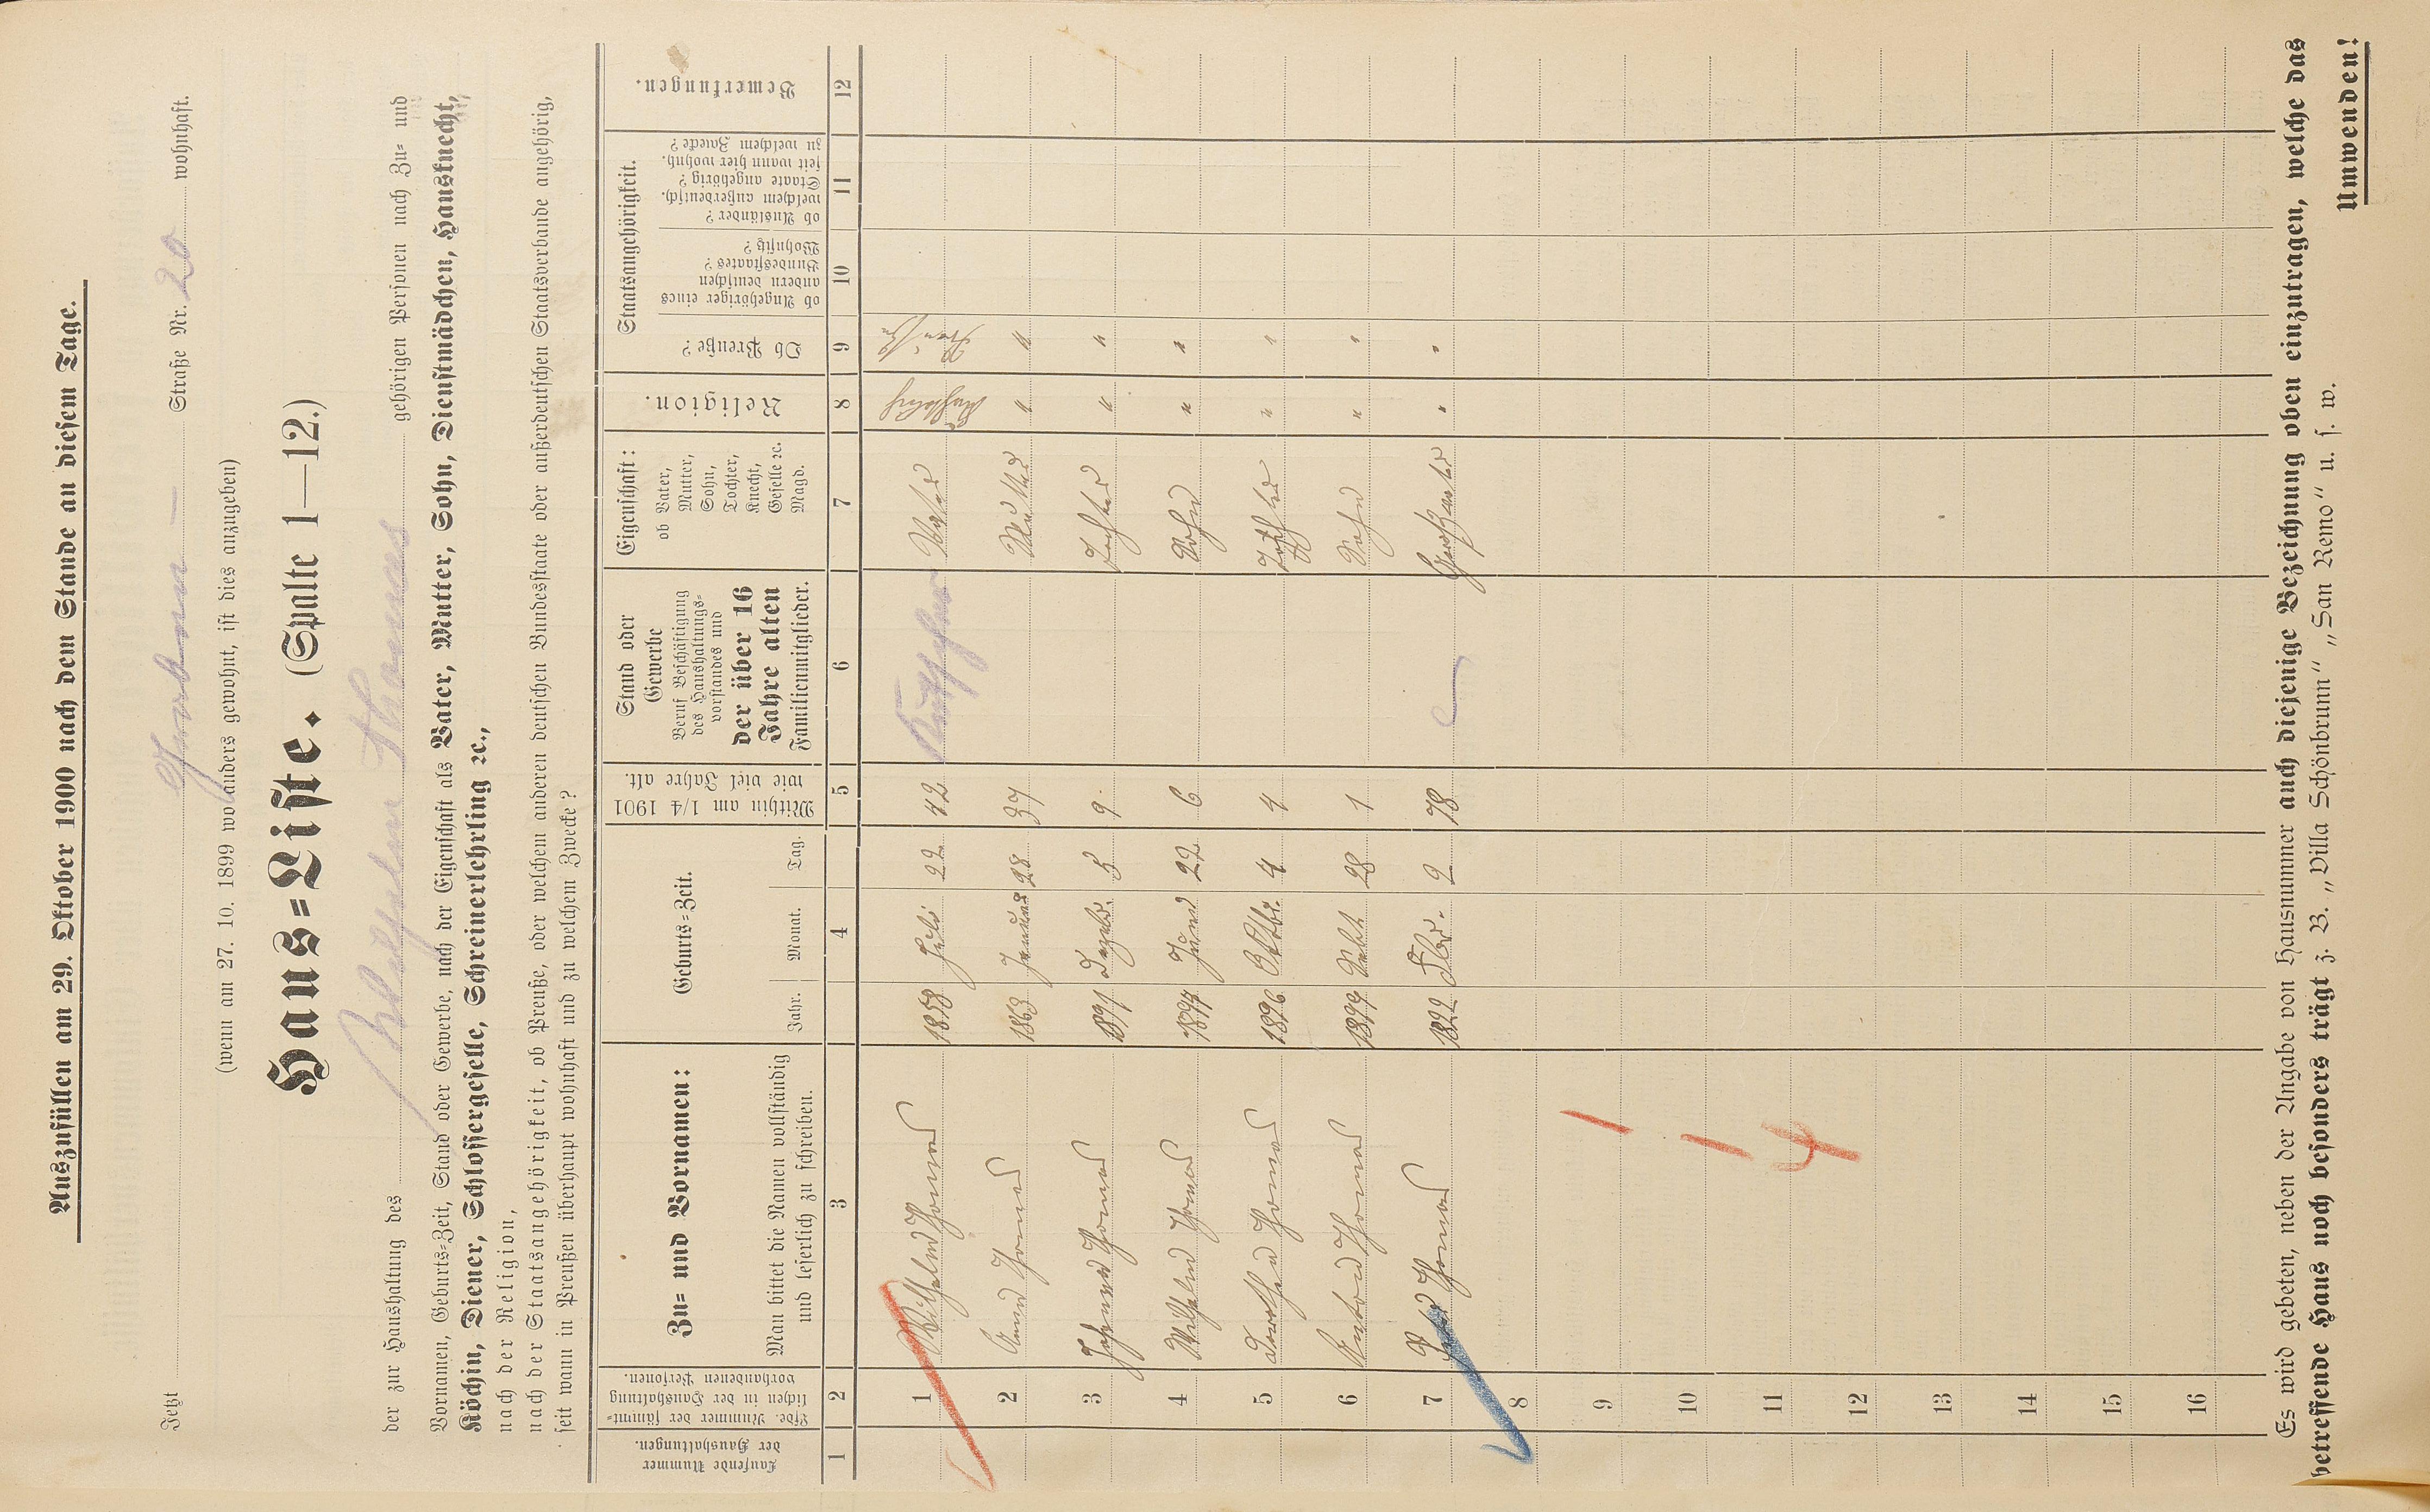 Auszufüllen am 29. Oktober 1900 nach dem Stande an diesem Tage.
Jetzt Straße Nr. 20 wohnhaft.
(wenn am 27. 10. 1899 wo anders gewohnt, ist dies anzugeben)
Haus=Liste. (Spalte 1—12.)
der zur Haushaltung des Wilhelm Thomas gehörigen Personen nach Zu= und
Vornamen, Geburts=Zeit, Stand oder Gewerbe, nach der Eigenschaft als Vater, Mutter, Sohn, Dienstmädchen, Hausknecht,
Köchin, Diener, Schlossergeselle, Schreinerlehrling ꝛc.,
nach der Religion,
nach der Staatsangehörigkeit, ob Preuße, oder welchem anderen deutschen Bundesstaate oder außerdeutschen Staatsverbande angehörig,
seit wann in Preußen überhaupt wohnhaft und zu welchem Zwecke?
Laufende Nummer
der Haushaltungen.
Lfde. Nummer der sämmt=
lichen in der Haushaltung
vorhandenen Personen.
Zu= und Vornamen:
Man bittet die Namen vollständig
und leserlich zu schreiben.
Geburts=Zeit.
Jahr. Monat. Tag.
Mithin am 1/4 1901
wie viel Jahre alt.
Stand oder
Gewerbe
Beruf Beschäftigung
des Haushaltungs=
vorstandes und
der über 16
Jahre alten
Familienmitglieder.
Eigenschaft:
ob Vater,
Mutter,
Sohn,
Tochter,
Knecht,
Geselle ꝛc.
Magd.
Religion.
Staatsangehörigkeit.
Ob Preuße?
ob Angehöriger eines
andern deutschen
Bundesstaates?
Wohnsitz?
ob Ausländer?
welchem außerdeutsch.
Staate angehörig?
seit wann hier wohnh.
zu welchem Zwecke?
Bemerkungen.
1 2 3 4 5 6 7 8 9 10 11 12
1 Wilhelm Thomas 1858 Juli 22 42 Kutscher Vater Katholisch Preuße
2 Anna Thomas 1863 Januar 28 37 Mutter " "
3 Johanna Thomas 1891 Dezbr. 3 9 Tochter " "
4 Wilhelm Thomas 1894 Juni 22 6 Sohn " "
5 Dorothea Thomas 1896 Oktbr. 4 4 Tochter " "
6 Thomas 1899 Sebt. 28 1 Sohn " "
7 Thomas 1822 Febr. 2 78 Großvater " "
8
9
10
11
12
13
14
15
16
4
Es wird gebeten, neben der Angabe von Hausnummer auch diejenige Bezeichnung oben einzutragen, welche das
betreffende Haus noch besonders trägt z. B. „Villa Schönbrunn" „San Remo" u. s. w.
Umwenden!